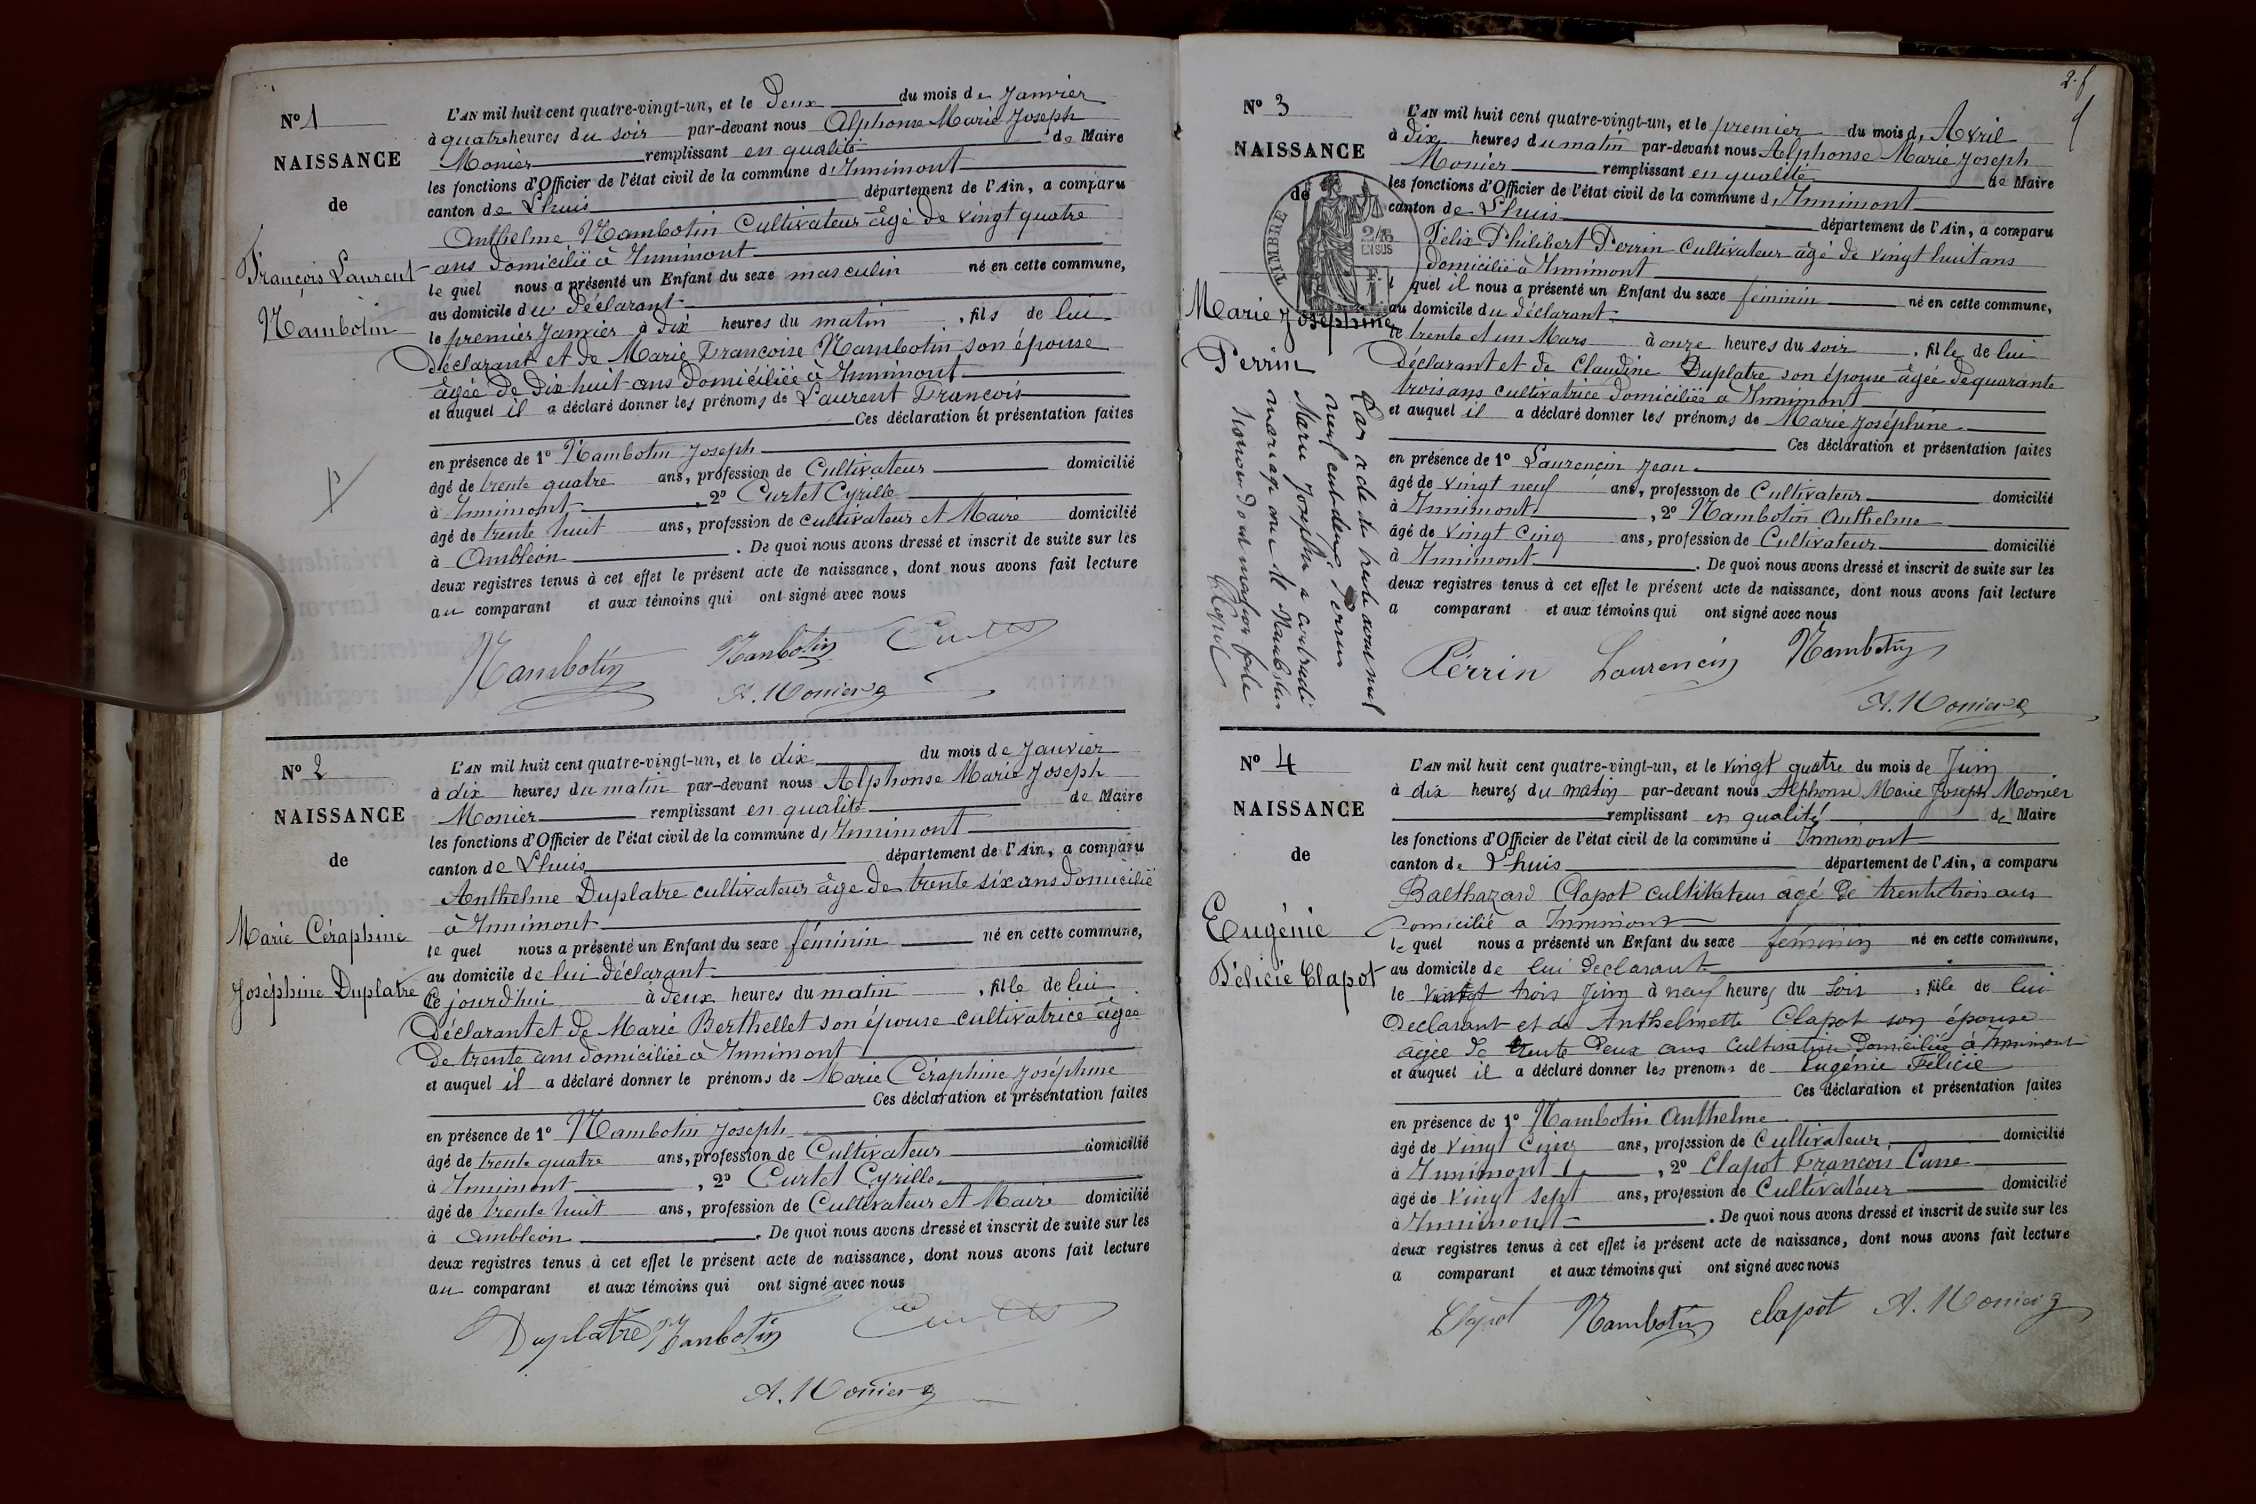 Nº 1
NAISSANCE
de
François Laurent
Nambotin
L'AN mil huit cent quatre-vingt-un, et le Deux du mois de Janvier
à quatre heures du soir par-devant nous Alphonse Marie Joseph
Monier remplissant en qualité de Maire
les fonctions d'Officier de l'état civil de la commune d'Innimont
canton de Lhuis département de l'Ain, a comparu
Anthelme Nambotin Cultivateur âgé de vingt quatre
ans domicilié à Innimont
le quel nous a présenté un Enfant du sexe masculin né en cette commune,
au domicile du déclarant
le premier Janvier à dix heures du matin, fils de lui
Déclarant et de Marie Francoise Nambotin son épouse
âgée de Dix huit ans Domiciliée à Innimont
et auquel il a déclaré donner les prénoms de Laurent Francois
Ces déclaration et présentation faites
en présence de 1º Nambotin Joseph
âgé de trente quatre ans, profession de Cultivateur domicilié
à Innimont, 2º Curtet Cyrille
âgé de trente huit ans, profession de cultivateur et Maire domicilié
à Ambléon. De quoi nous avons dressé et inscrit de suite sur les
deux registres tenus à cet effet le présent acte de naissance, dont nous avons fait lecture
au comparant et aux témoins qui ont signé avec nous
Nambotin Nambotin Curtet
A. Monier
Nº 2
NAISSANCE
de
Marie Céraphine
Joséphine Duplatre
L'AN mil huit cent quatre-vingt-un, et le dix du mois de Janvier
à dix heures du matin par-devant nous Alphonse Marie Joseph
Monier remplissant en qualité de Maire
les fonctions d'Officier de l'état civil de la commune d'Innimont
canton de Lhuis département de l'Ain, a comparu
Anthelme Duplatre cultivateur âge de trente six ans domicilié
à Innimont
le quel nous a présenté un Enfant du sexe féminin né en cette commune,
au domicile de lui déclarant
Ce jourd'hui à deux heures du matin, fille de lui
Déclarant et de Marie Berthellet son épouse cultivatrice âgée
de trente ans domiciliée à Innimont
et auquel il a déclaré donner le prénoms de Marie Céraphine Joséphine
Ces déclaration et présentation faites
en présence de 1º Nambotin Joseph
âgé de trente quatre ans, profession de Cultivateur domicilié
à Innimont, 2º Curtet Cyrille
âgé de trente huit ans, profession de Cultivateur et Maire domicilié
à Ambléon. De quoi nous avons dressé et inscrit de suite sur les
deux registres tenus à cet effet le présent acte de naissance, dont nous avons fait lecture
au comparant et aux témoins qui ont signé avec nous
Duplatre Nambotin Curtet
A. Monier
2. f
Nº 3
NAISSANCE
de
TIMBRE
2/10
EN SUS
Marie Joséphine
Perrin
Par acte du trente avril mil
neuf cent deux, Perrin
Marie Josephe a contracté
mariage avec
L'AN mil huit cent quatre-vingt-un, et le premier du mois d'Avril
à Dix heures du matin par-devant nous Alphonse Marie Joseph
Monier remplissant en qualité de Maire
les fonctions d'Officier de l'état civil de la commune d'Innimont
canton de Lhuis département de l'Ain, a comparu
Félix Philibert Perrin Cultivateur âgé de vingt huit ans
domicilié à Innimont
l quel il nous a présenté un Enfant du sexe féminin né en cette commune,
au domicile du déclarant
le trente et un Mars à onze heures du soir, fille de lui
Déclarant et de Claudine Duplatre son épouse âgée de quarante
trois ans cultivatrice domiciliée à Innimont
et auquel il a déclaré donner les prénoms de Marie Joséphine
Ces déclaration et présentation faites
en présence de 1º Laurencin Jean
âgé de vingt neuf ans, profession de Cultivateur domicilié
à Innimont, 2º Nambotin Anthelme
âgé de vingt Cinq ans, profession de Cultivateur domicilié
à Innimont. De quoi nous avons dressé et inscrit de suite sur les
deux registres tenus à cet effet le présent acte de naissance, dont nous avons fait lecture
a comparant et aux témoins qui ont signé avec nous
Perrin Laurencin Nambotin
A. Monier
Nº 4
NAISSANCE
de
Eugénie
Félicie Clapot
L'AN mil huit cent quatre-vingt-un, et le vingt quatre du mois de Juin
à dix heures du matin par-devant nous Alphonse Marie Joseph Monier
remplissant en qualité de Maire
les fonctions d'Officier de l'état civil de la commune d Innimont
canton de Lhuis département de l'Ain, a comparu
Balthazard Clapot cultivateur âgé de trente trois ans
domicilié a Innimont
le quel nous a présenté un Enfant du sexe féminin né en cette commune,
au domicile de lui déclarant
le vingt trois Juin à neuf heures du soir, fille de lui
Declarant et de Anthelmette Clapot son épouse
agée de trente deux ans cultivatrice domiciliée à Innimont
et auquel il a déclaré donner les prénoms de Eugénie Félicie
Ces déclaration et présentation faites
en présence de 1º Nambotin Anthelme
âgé de vingt Cinq ans, profession de Cultivateur domicilié
à Innimont, 2º Clapot Francois
âgé de vingt sept ans, profession de Cultivateur domicilié
à Innimont. De quoi nous avons dressé et inscrit de suite sur les
deux registres tenus à cet effet le présent acte de naissance, dont nous avons fait lecture
a comparant et aux témoins qui ont signé avec nous
Clapot Nambotin clapot A. Monier